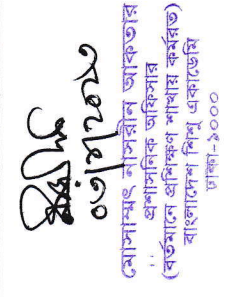 ০৩/০৮/২০২৩
মোসাম্মৎ নাসরীন আকতার
প্রশাসনিক অফিসার
(বর্তমানে প্রশিক্ষণ শাখায় কর্মরত)
বাংলাদেশ শিশু একাডেমি
ঢাকা-১০০০